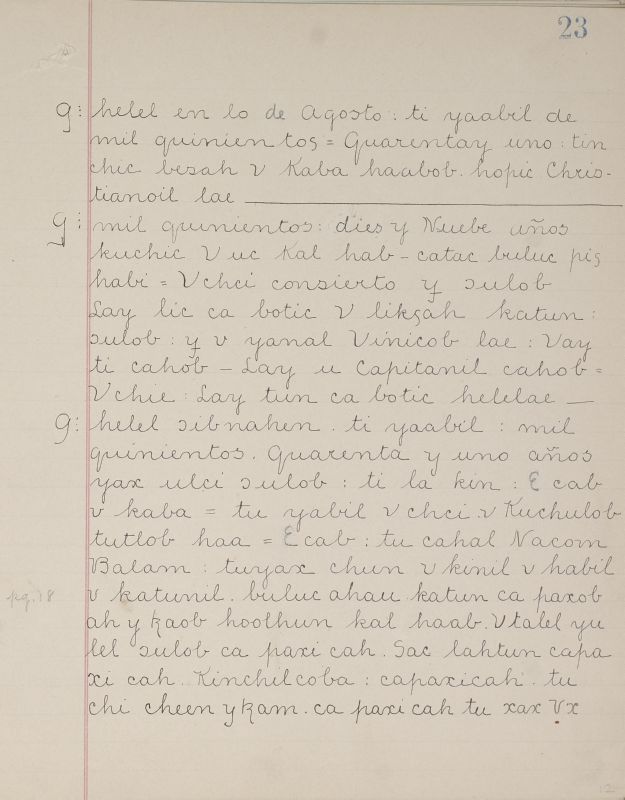 23
9: helel en lo de Agosto: ti yaabil de
mil quinientos = Quarentay uno: tin
chic besah v Kaba haabob. hopic Chris-
tianoil lae
9: mil quinientos: dies y Nuebe años
kuchic V uc Kal hab - catac buluc piς
habi = Vchci consierto y ɔulob
Lay lic ca botic V likςah katun:
ɔulob: y v yanal Vinicob lae: Vay
ti cahob - Lay u Capitanil cahob =
Vchie: Lay tun ca botic helelae
9: helel ɔibnahen. ti yaabil: mil
quinientos. Quarenta y uno años
yax ulci ɔulob: ti la kin: Ɛ cab
v kaba = tu yabil v chci v Kuchulob
tutlob haa = Ɛcab: tu cahal Nacom
Balam: tuyax chun v kinil v habil
pg. 18
v katunil. buluc ahau katun ca paxob
ah y ꞩaob hoolhun kal haab. Vtalel yu
lel ɔulob ca paxi cah. Sac lahtun capa
xi cah. Kinchilcoba: capaxicah. tu
chi cheen y ꞩam. ca paxi cah tu xax Vx